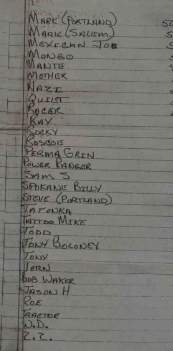 MARK (PORTLAND) 50
MARK (SALEM) 5
MEXICAN JOE
MONGO
MANTE
MOTHER
NAZI
QUIET
RACER
RAY
ROCKY
ROSCOE
PERMA GRIN
POWER RANGER
SAM S
SPOKANE BILLY
STEVE (PORTLAND)
TATONKA
TATTOO MIKE
TODD
TONY BOLONEY
TONY
VERN
BOB WAKER
JASON H
ROE
TRACTOR
N.D.
Z.Z.